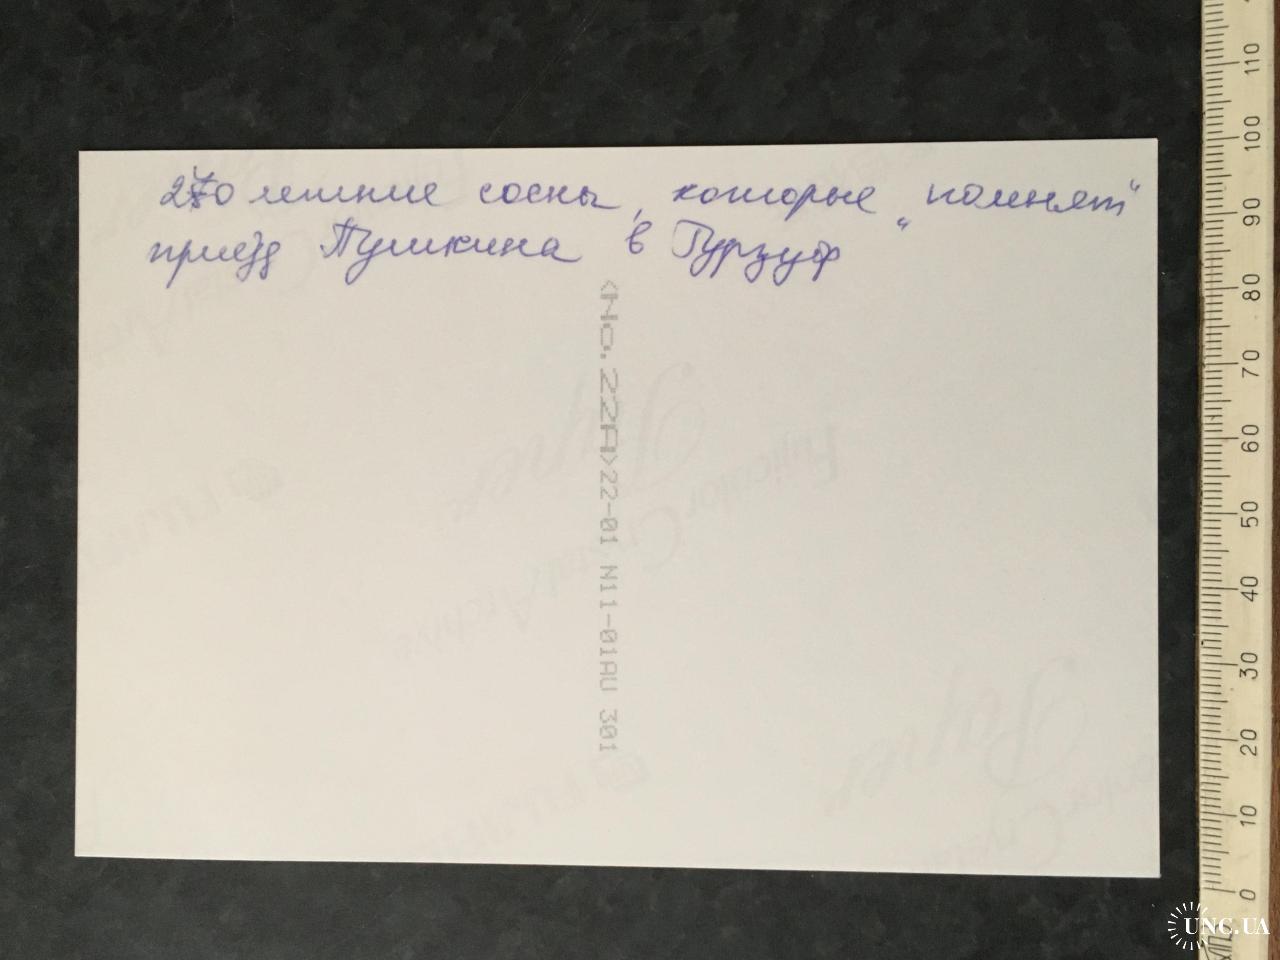 270 летние сосны, которые „помнят“
приезд Пушкина в Гурзуф
<No.22A>22-01 N11-01AU 301
Fujicolor
Crystal Archive
Paper
Paper
110
100
90
80
70
60
50
40
30
20
10
0
UNC.UA